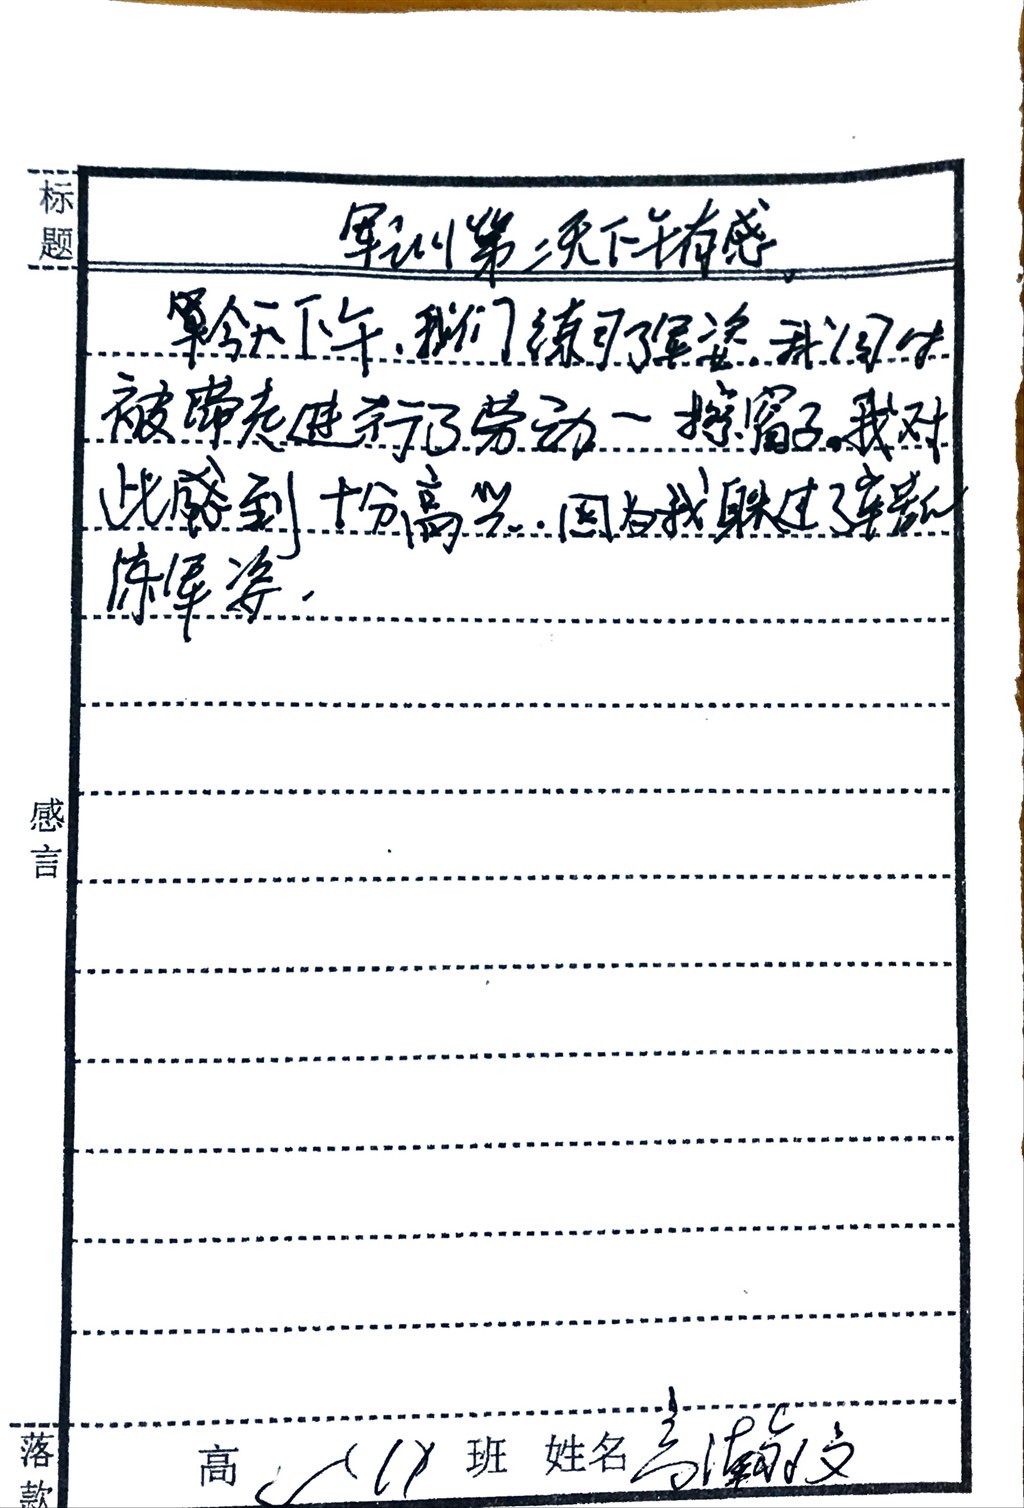 标题
军训第二天下午有感
今天下午，我们练习了军姿，我同时
被带走进行了劳动一擦窗子。我对
此感到十分高兴.因为我躲过了辛苦的
练军姿.
感言
落款
高 (1) 班 姓名 高瀚文